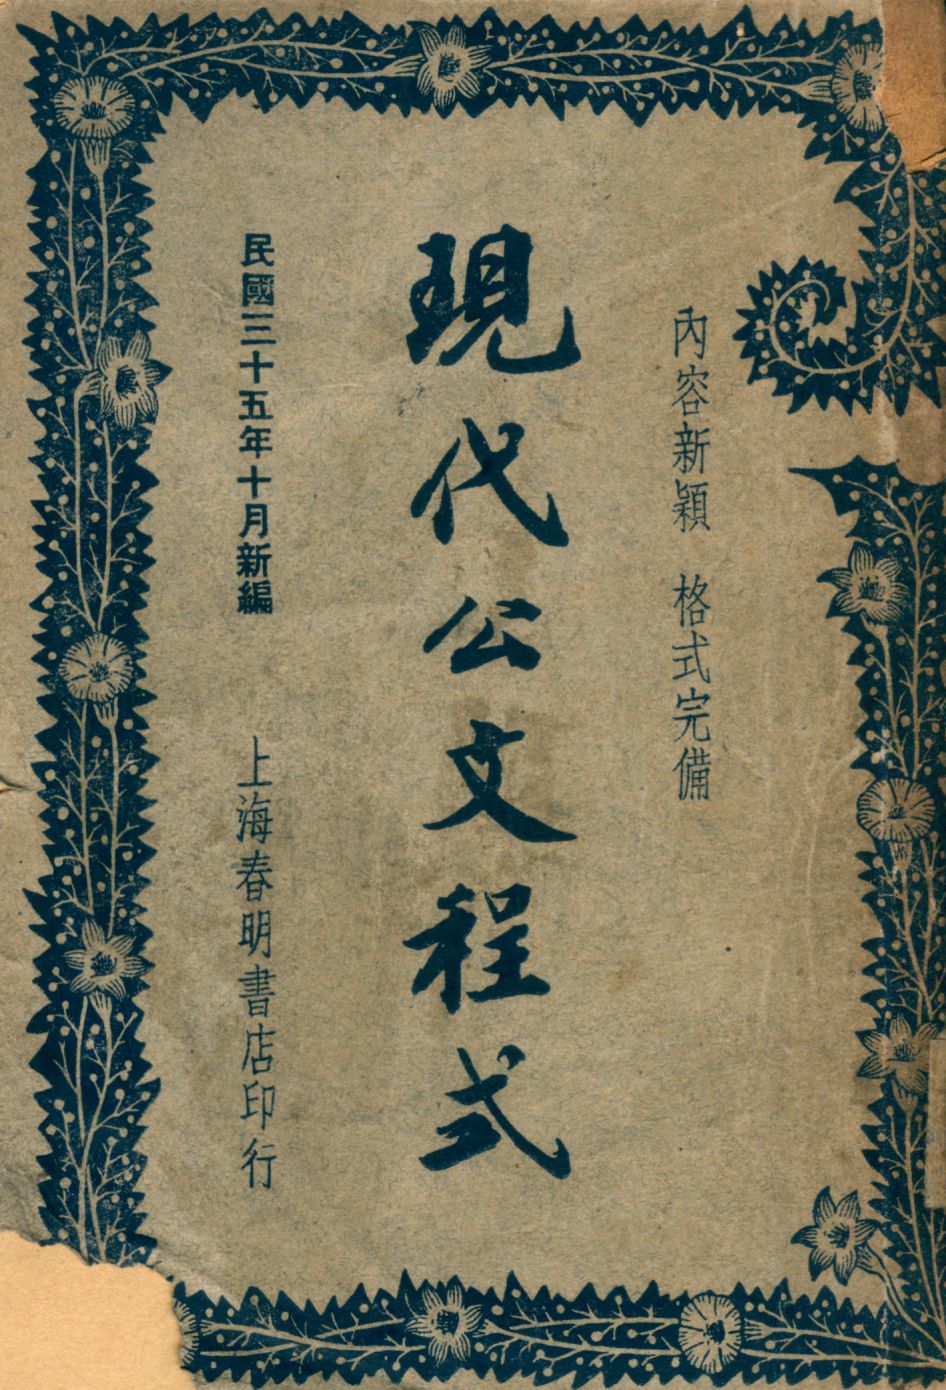 內容新穎　格式完備
現代公文程式
民國三十五年十月新編　上海春明書店印行